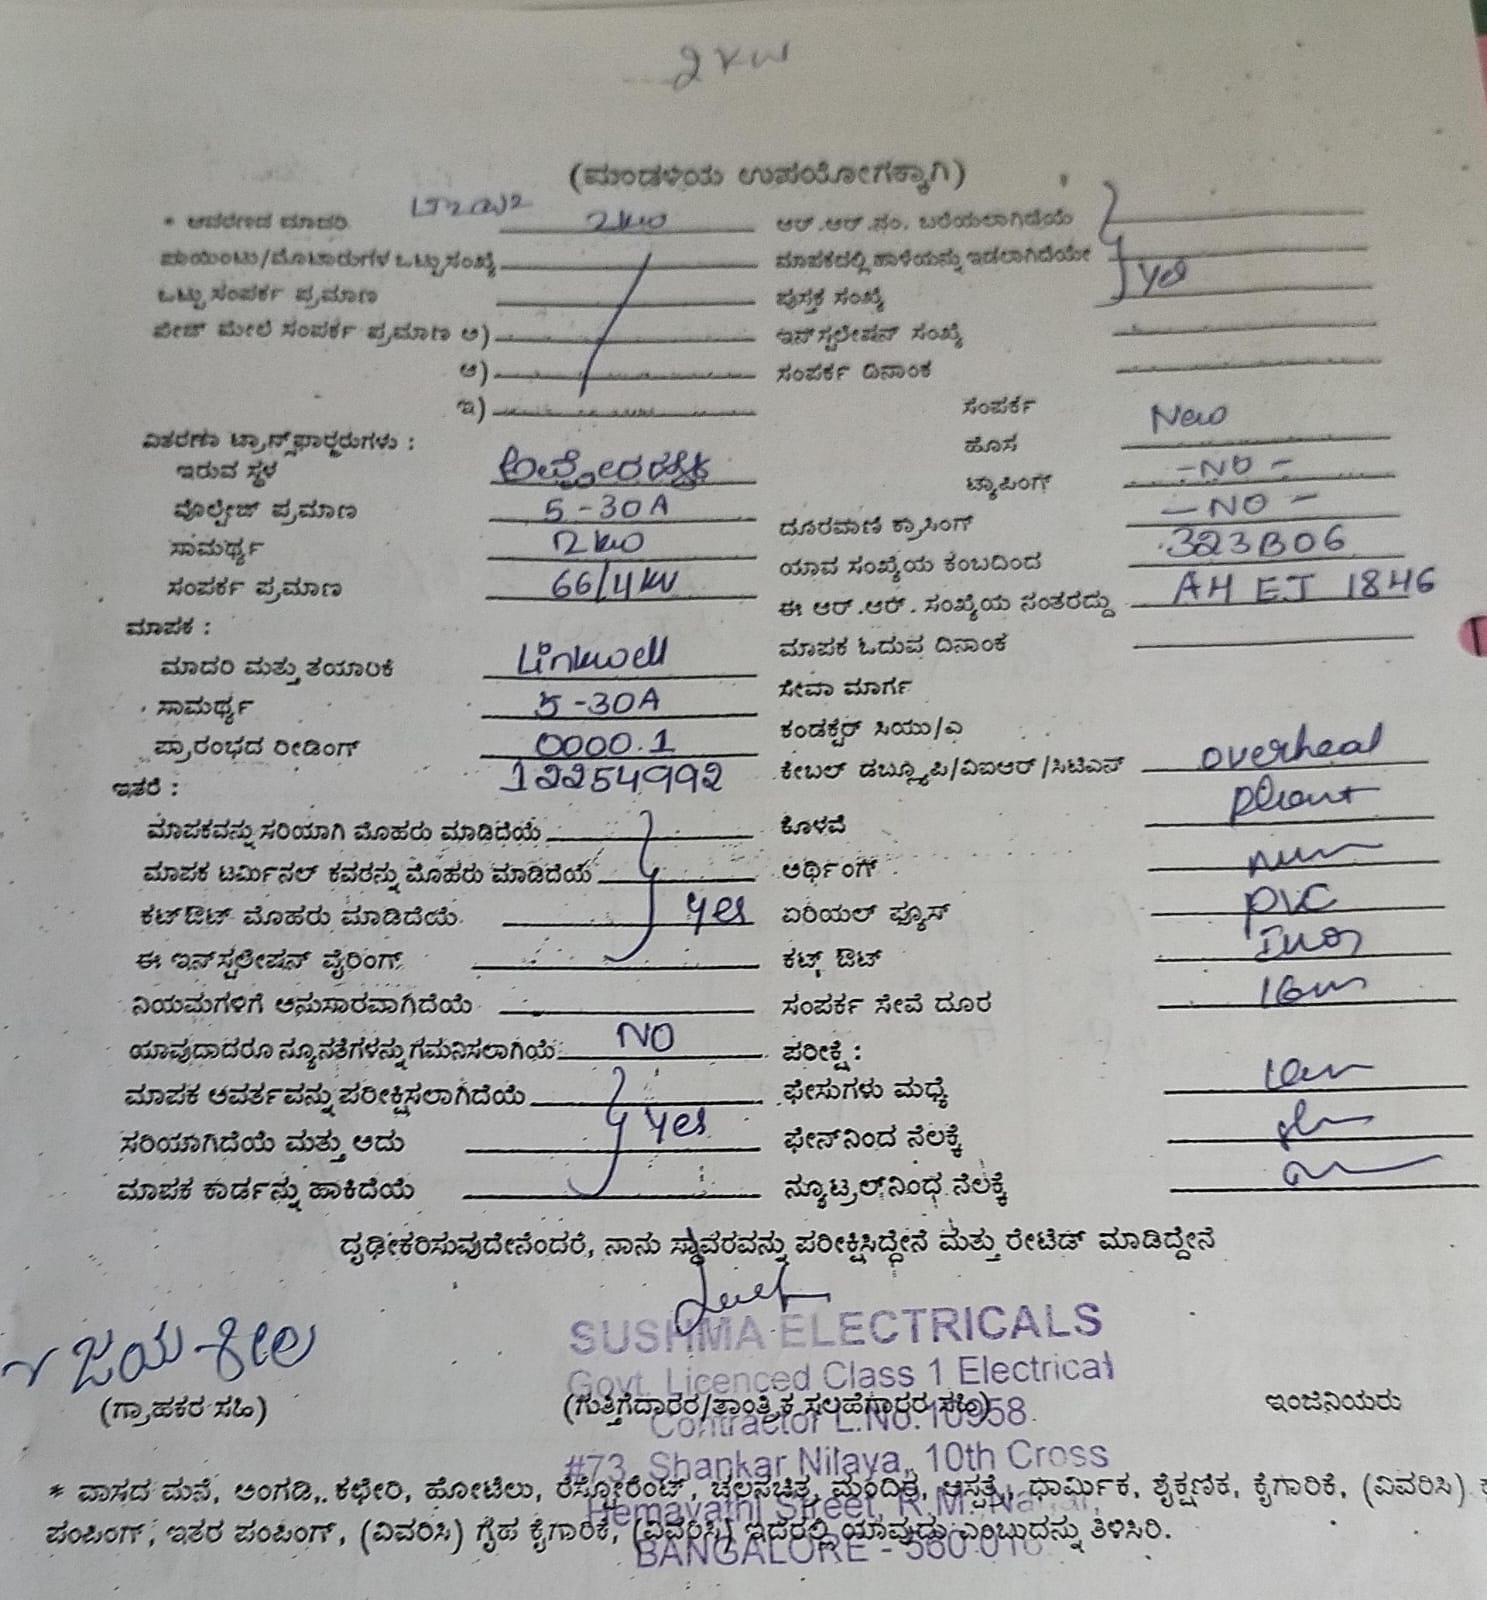 2 KW
(ಮಂಡಳಿಯ ಉಪಯೋಗಕ್ಕಾಗಿ)
* ಆವರಣದ ಮಾದರಿ 2kw ಆರ್.ಆರ್.ನಂ. ಬರೆಯಲಾಗಿದೆಯೆ
ಪಾಯಿಂಟು/ಮೋಟಾರುಗಳ ಒಟ್ಟು ಸಂಖ್ಯೆ ಮಾಪಕದಲ್ಲಿ ಹಾಳೆಯನ್ನು ಇಡಲಾಗಿದೆಯೇ
ಒಟ್ಟು ಸಂಪರ್ಕ ಪ್ರಮಾಣ ಪುಸ್ತಕ ಸಂಖ್ಯೆ Yes
ಪೇಜ್ ಮೇಲೆ ಸಂಪರ್ಕ ಪ್ರಮಾಣ ಅ) ಇನ್‌ಸ್ಟಲೇಷನ್ ಸಂಖ್ಯೆ
ಆ) ಸಂಪರ್ಕ ದಿನಾಂಕ
ಇ) ಸಂಪರ್ಕ New
ವಿತರಣಾ ಟ್ರಾನ್ಸ್‌ಫಾರ್ಮರುಗಳು : ಹೊಸ
ಇರುವ ಸ್ಥಳ ಟ್ಯಾಪಿಂಗ್ -NO-
ವೊಲ್ಟೇಜ್ ಪ್ರಮಾಣ 5-30A ದೂರವಾಣಿ ಕ್ರಾಸಿಂಗ್ -NO-
ಸಾಮರ್ಥ್ಯ 2kw ಯಾವ ಸಂಖ್ಯೆಯ ಕಂಬದಿಂದ 323B06
ಸಂಪರ್ಕ ಪ್ರಮಾಣ 66/4kv ಈ ಆರ್.ಆರ್. ಸಂಖ್ಯೆಯ ನಂತರದ್ದು AHEJ 1846
ಮಾಪಕ : ಮಾಪಕ ಓದುವ ದಿನಾಂಕ
ಮಾದರಿ ಮತ್ತು ತಯಾರಿಕೆ Linkwell ಸೇವಾ ಮಾರ್ಗ
ಸಾಮರ್ಥ್ಯ 5-30A ಕಂಡಕ್ಟರ್ ಸಿಯು/ಎ
ಪ್ರಾರಂಭದ ರೀಡಿಂಗ್ 0000.1 ಕೇಬಲ್ ಡಬ್ಲ್ಯೂಪಿ/ವಿಐಆರ್/ಸಿಟಿಎಸ್ overheal
ಇತರೆ : 12254992
ಮಾಪಕವನ್ನು ಸರಿಯಾಗಿ ಮೊಹರು ಮಾಡಿದೆಯೆ ಕೊಳವೆ
ಮಾಪಕ ಟರ್ಮಿನಲ್ ಕವರನ್ನು ಮೊಹರು ಮಾಡಿದೆಯೆ ಅರ್ಥಿಂಗ್
ಕಟ್‌ಔಟ್ ಮೊಹರು ಮಾಡಿದೆಯೆ Yes ಏರಿಯಲ್ ಫ್ಯೂಸ್ PVC
ಈ ಇನ್‌ಸ್ಟಲೇಷನ್ ವೈರಿಂಗ್ ಕಟ್ಸ್ ಔಟ್
ನಿಯಮಗಳಿಗೆ ಅನುಸಾರವಾಗಿದೆಯೆ ಸಂಪರ್ಕ ಸೇವೆ ದೂರ
ಯಾವುದಾದರೂ ನ್ಯೂನತೆಗಳನ್ನು ಗಮನಿಸಲಾಗಿಯೆ NO ಪರೀಕ್ಷೆ :
ಮಾಪಕ ಆವರ್ತವನ್ನು ಪರೀಕ್ಷಿಸಲಾಗಿದೆಯೆ ಫೇಸುಗಳು ಮಧ್ಯೆ
ಸರಿಯಾಗಿದೆಯೆ ಮತ್ತು ಅದು Yes ಫೇಸ್‌ನಿಂದ ನೆಲಕ್ಕೆ
ಮಾಪಕ ಕಾರ್ಡನ್ನು ಹಾಕಿದೆಯೆ ನ್ಯೂಟ್ರಲ್‌ನಿಂಧ ನೆಲಕ್ಕೆ
ದೃಢೀಕರಿಸುವುದೇನೆಂದರೆ, ನಾನು ಸ್ಥಾವರವನ್ನು ಪರೀಕ್ಷಿಸಿದ್ದೇನೆ ಮತ್ತು ರೇಟೆಡ್ ಮಾಡಿದ್ದೇನೆ
ಜಯಶೀಲ
SUSHMA ELECTRICALS
Govt. Licenced Class 1 Electrical
(ಗ್ರಾಹಕರ ಸಹಿ) (ಗುತ್ತಿಗೆದಾರರ/ತಾಂತ್ರಿಕ ಸಲಹೆಗಾರರ ಸಹಿ) ಇಂಜಿನಿಯರು
Contractor L.No. 10958
#73, Shankar Nilaya, 10th Cross
* ವಾಸದ ಮನೆ, ಅಂಗಡಿ, ಕಛೇರಿ, ಹೋಟೆಲು, ರೆಸ್ಟೋರೆಂಟ್, ಚಲನಚಿತ್ರ ಮಂದಿರ, ಆಸ್ಪತ್ರೆ, ಧಾರ್ಮಿಕ, ಶೈಕ್ಷಣಿಕ, ಕೈಗಾರಿಕೆ, (ವಿವರಿಸಿ)
Hemavathi Street, R.M. Nagar,
ಪಂಪಿಂಗ್, ಇತರ ಪಂಪಿಂಗ್, (ವಿವರಿಸಿ) ಗೃಹ ಕೈಗಾರಿಕೆ, (ವಿವರಿಸಿ) ಇದರಲ್ಲಿ ಯಾವುದು ಎಂಬುದನ್ನು ತಿಳಿಸಿರಿ.
BANGALORE - 560 016